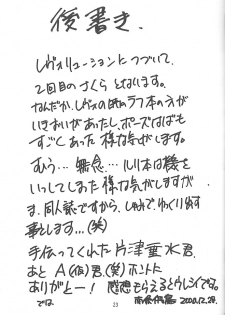 後書き.
レヴォリューションにつづいて、
2回目のさくらとなります。
なんだか、レヴォの時のラフ本の方が
いきおいがあったし、ポーズはばも
すごくあった様な気がします。
むう…無念…ルリ本は機を
いってしまった様な気がしますが
ま、同人誌ですから、しゅみでゆっくり出す
事とします…(笑)
手伝ってくれた片津垂水君、
あとA(仮)君、(笑)ホントに
ありがとー!感想もらえるとウレシイです。
では、 2000.12.28.
23